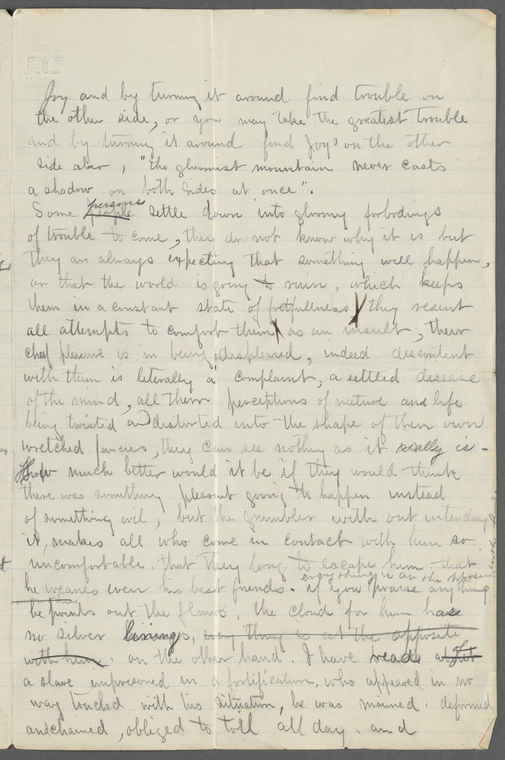 Joy and by turning it around find trouble on
the other side, or you may take the greatest trouble
and by turning it around find Joys on the other
side also, "the gloomiest mountain never casts
a shadow on both sides at once".
Some people persons settle down into gloomy forbodings
of trouble to come, they do not know why it is but
they are always expecting that something will happen,
or that the world is going to ruin, which keeps
them in a constant state of fretfullness they resent
all attempts to comfort them as an insult, their
chief pleasure is in being displeased, indeed discontent
with them is literally a "complaint, a settled disease
of the mind, all their perceptions of nature and life
being twisted and distorted into the shape of their own
wretched fancies, they can see nothing as it really is -
How much better would it be if they would think
there was something pleasant going to happen instead
of something evil, but the grumbler with out intending
it, makes all who come in contact with him so
uncomfortable, that they long to escape him - that
he weanes even his best friends. if you praise anything
everything is at the opposite
he points out the flaws, the cloud for him has
no silver linings, every thing is at the opposite
with him. on the other hand. I have read
a slave imprisoned in a fortification, who appeared in no
way touched with his situation, he was maimed. deformed
and chained, obliged to toll all day. and